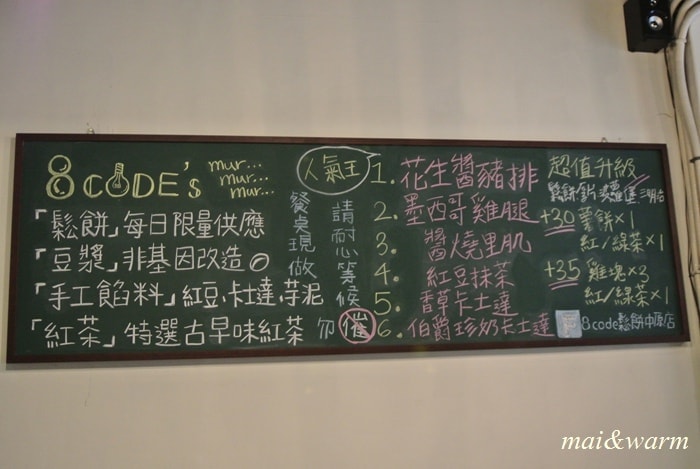 8 CODE's mur...
mur...
mur...
「鬆餅」每日限量供應
「豆漿」非基因改造
「手工餡料」紅豆、卡士達、芋泥
「紅茶」特選古早味紅茶
餐桌現做
請耐心等候
勿催
人氣王
1. 花生醬豬排
2. 墨西哥雞腿
3. 醬燒里肌
4. 紅豆抹茶
5. 香草卡士達
6. 伯爵珍奶卡士達
超值升級
鬆餅 三明治
+30 薯餅×1
紅/綠茶×1
+35 雞塊×3
紅/綠茶×1
8code鬆餅中原店
mai&warm